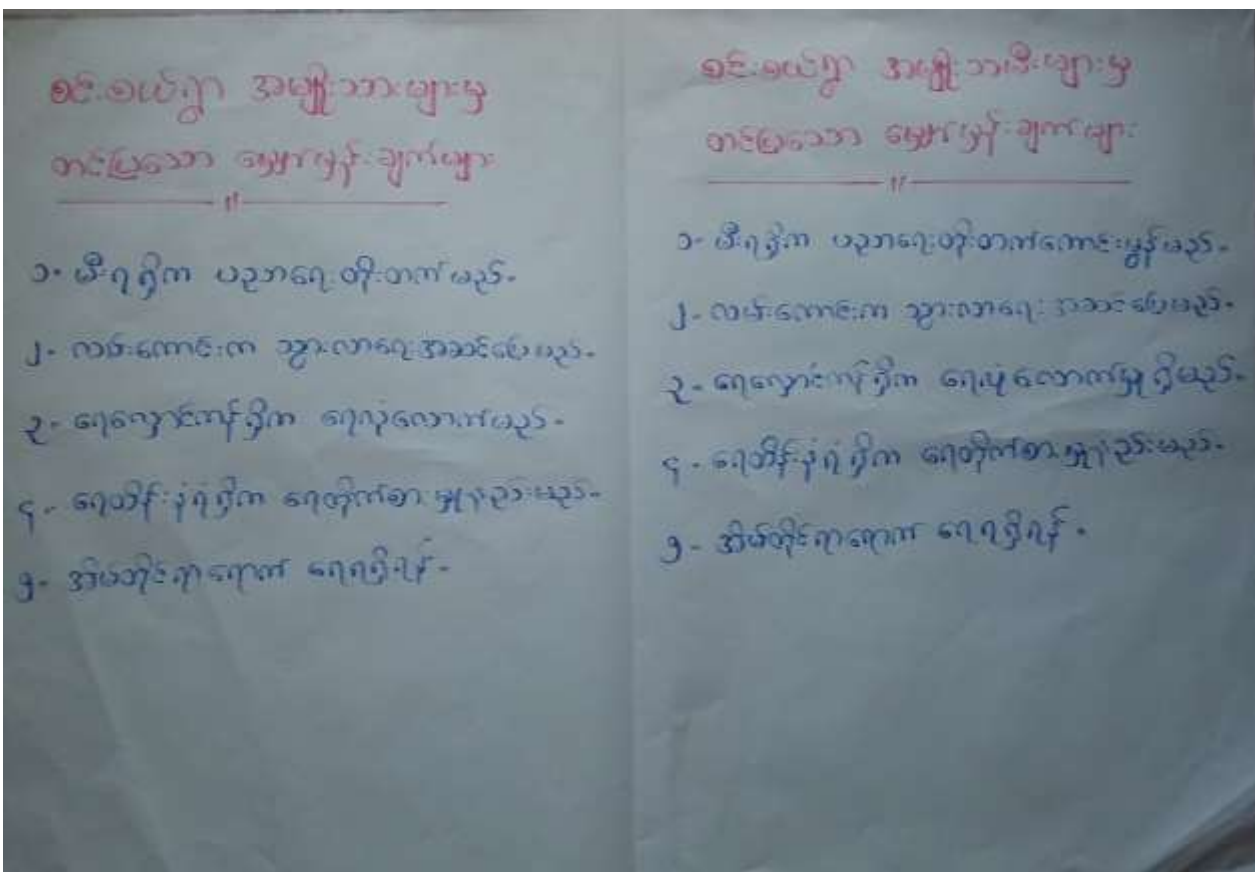 စင်စယ်ရွာ အမျိုးသားများမှ
တင်ပြသော မျှော်မှန်းချက်များ
၁- မီးရရှိက ပညာရေးတိုးတက်မည်။
၂- လမ်းကောင်းက သွားလာရေးအဆင်ပြေမည်။
၃- ရေလှောင်ကန်ရှိက ရေလုံလောက်မည်။
၄- ရေထိန်းနံရံရှိက ရေတိုက်စားမှုနည်းမည်။
၅- အိမ်တိုင်ရာရောက် ရေရရှိရန်။
စင်စယ်ရွာ အမျိုးသမီးများမှ
တင်ပြသော မျှော်မှန်းချက်များ
၁- မီးရရှိက ပညာရေးတိုးတက်ကောင်းမွန်မည်။
၂- လမ်းကောင်းက သွားလာရေးအဆင်ပြေမည်။
၃- ရေလှောင်ကန်ရှိက ရေလုံလောက်မှုရှိမည်။
၄- ရေထိန်းနံရံရှိက ရေတိုက်စားမှုနည်းမည်။
၅- အိမ်တိုင်ရာရောက် ရေရရှိရန်။